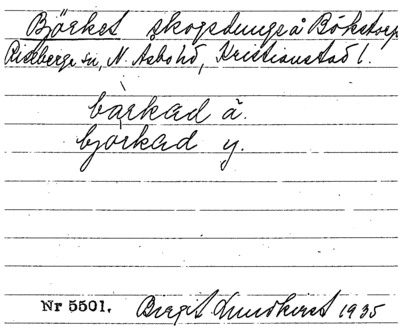 Björket skogsdunge å Bökstorp
Riseberga sn, N. Åsbo hd, Kristianstad l.
bàrkað ä.
bjàrkað y.
Nr 5501. Birgit Lundkvist 1935